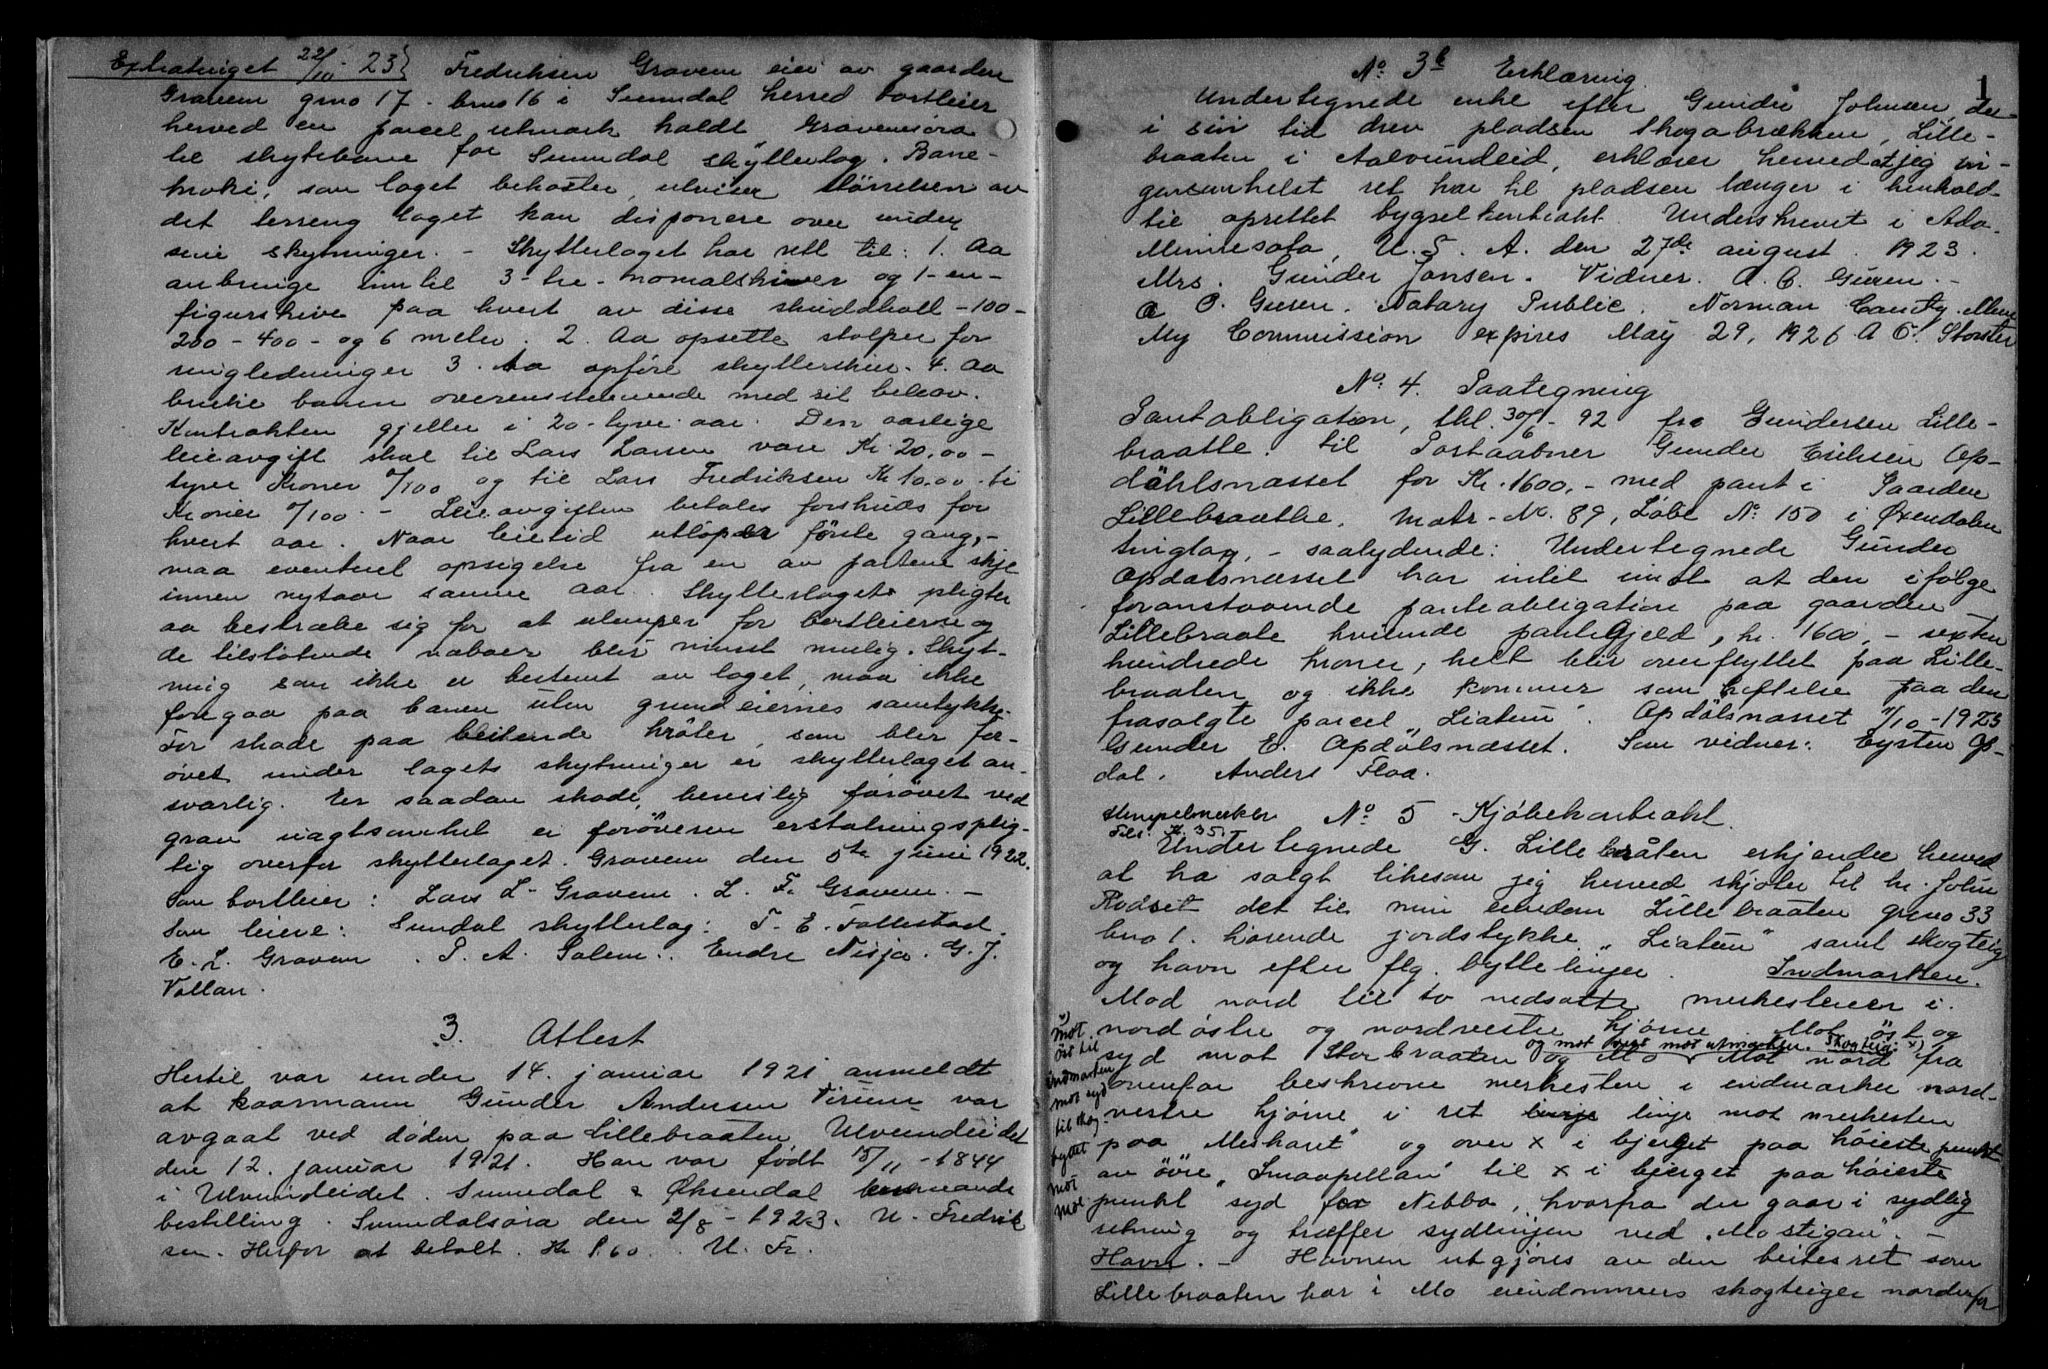 Extratinget 22/10 - 23 } Fredriksen Gravem eier av gaarden
Gravem gno 17 - bno 16 i Sunndal herred bortleier
herved en parcel utmark kaldt Gravemsøra
til skytebane for Sunndal skytterlag. Bane-
merker, som laget bekoster, utviser størrelsen av
det terreng laget kan disponere over under
sine skytninger. - Skytterlaget har rett til: 1. Aa
anbringe inntil 3 - tre - normalskiver og 1 - en -
figurskive paa hvert av disse skuddhold - 100 -
200 - 400 - og 6 meter. 2. Aa opsette stolper for
ringledninger 3. Aa opføre skytterskur. 4. Aa
bruke banen overensstemmende med sit behov.
Kontrakten gjelder i 20 - tyve aar. Den aarlige
leieavgift skal til Lars Larsen være Kr. 20,00 -
tyve Kroner 0/100 og til Lars Fredriksen Kr 10.00 - ti
Kroner 0/100. - Leieavgiften betales forskuds for
hvert aar. Naar leietid utløper første gang, -
maa eventuel opsigelse fra en av partene skje
innen nytaar samme aar. Skytterlaget pligter
aa bestræbe sig for at ulemper for bortleierne og
de tilstøtende naboer blir minst mulig. Skyt-
ning som ikke er bestemt av laget, maa ikke
foregaa paa banen uten grundeiernes samtykke.
For skade paa beitende krøter, som blir for-
øvet under lagets skytninger er skytterlaget an-
svarlig. Er saadan skade, beviselig forøvet ved
grov uagtsomhet er forøveren erstatningsplig-
tig overfor skytterlaget. Gravem den 5te juni 1922.
Som bortleier: Lars L. Gravem. L. F. Gravem. -
Som leiere: Sundal skytterlag: T. E. Follestad.
E. L. Gravem. P. A. Solem. Endre Nisja. G. J.
Vollan.
3. Attest
Hertil var under 14. januar 1921 anmeldt
at kaarmann Gunder Andersen Virum var
avgaat ved døden paa Lillebraaten, Ulvundeidet
den 12. januar 1921. Han var født 15/11 - 1844
i Ulvundeidet. Sunndal & Øksendal lensmands
bestilling. Sunndalsøra den 2/8 - 1923. U. Fredrik
sen. Herfor at betalt. Kr 1.60. U. Fr.
1
No 3b Erklæring
Undertegnede enke efter Gunder Johnsen der
i sin tid drev pladsen Skogabrækken, Lille-
braaten i Aalvundeid, erklærer herved at jeg in-
gensomhelst ret har til pladsen længer i henhold
til oprettet bygselkontrakt. Underskrevet i Ada
Minnesota, U. S. A. den 27de august 1923.
Mrs. Gunder Jonsen. Vidner. A. C.
Notary Public. Norman County. Minn
My Commission expires May 29, 1926 A C.
No. 4. Paategning
Pantobligation, thl. 30/6 - 92 fra Gundersen Lille-
braatle. til Postaabner Gunder Eriksen Op-
døhlsnæsset for Kr. 1600, - med pant i Gaarden
Lillebraathe. Matr - No. 89, Løbe No 150 i Øxendalen
tinglag, - saalydende: Undertegnede Gunder
Opdalsnæsset har intet imot at den ifølge
foranstaaende panteobligation paa gaarden
Lillebraate hvilende pantegjeld, kr. 1600, - sexten
hundrede kroner, helt blir overflyttet paa Lille-
braaten og ikke kommer som heftelse paa den
frasolgte parcel "Liatun". Opdølsnæsset 11/10 - 1923
Gunder E. Opdølsnæsset. Som vidner: Eysten Op-
dal. Anders Floa.
Stempelmerker No 5 - Kjøbekontrakt.
Kr. 35.
Undertegnede G. Lillebråten erkjender herved
at ha solgt likesom jeg herved skjøter til hr. John
Rødset det til min eiendom Lillebraaten grno 33
bno 1. hørende jordstykke "Liatun" samt skogteig
og havn efter flg. byttelinjer. Indmarken.
Mod nord til to nedsatte merkestener i
nordøstre og nordvestre hjørne Mot øst og
og mot vest mot utmarken. Skogteig: x)
syd mot Storbraaten og Mo Mot nord fra
ovenfor beskrevne merkesten i indmarkens nord-
vestre hjørne i ret linje linje mot merkesten
paa "Meskaret" og over x i bjerget paa høieste punkt
av øvre "Smaapellan" til x i bjerget paa høieste
punkt syd for Nebba, hvorfra den gaar i sydlig
retning og træffer sydlinjen ved "Mostigan". -
Havn. - Havnen utgjøres av den beitesret som
Lillebraaten har i Mo eiendommers skogteiger nordenfor
x) mot
øst til
indmarken
mot syd
til skog-
byttet
mot
Mo